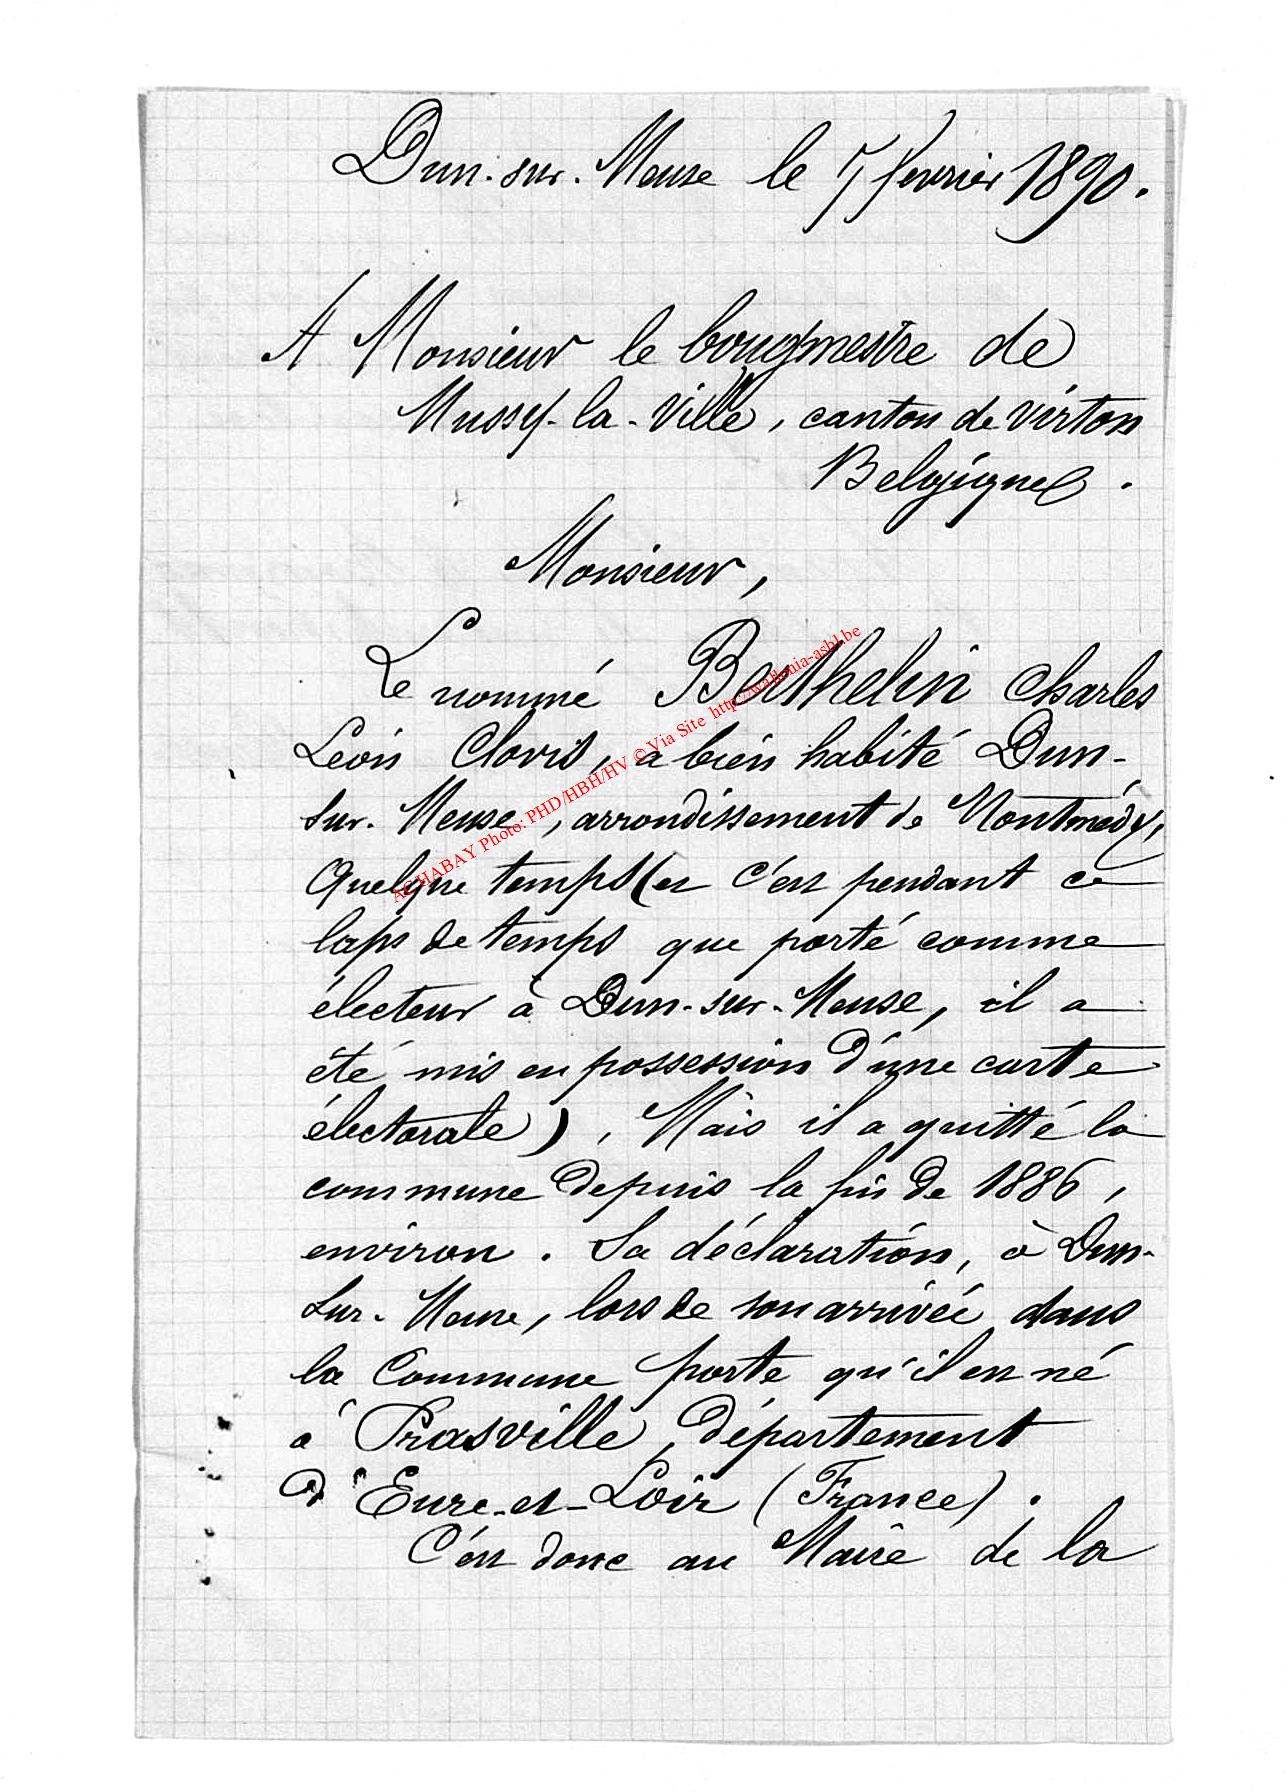 Dun-sur-Meuse le 7 fevrier 1890.
A Monsieur le bougmestre de
Mussy-la-Ville, canton de Virton
Belgique.
Monsieur,
Le nommé Berthelin Charles
Léon Clovis, a bien habité Dun-
sur-Meuse, arrondissement de Montmédy,
Quelque temps (et c'est pendant ce
laps de temps que porté comme
électeur à Dun-sur-Meuse, il a
été mis en possession d'une carte
électorale), Mais il a quitté la
commune depuis la fin de 1886,
environ. Sa déclaration, à Dun-
sur-Meuse, lors de son arrivée dans
la Commune porte qu'il est né
à Prasville, département
d'Eure-et-Loir (France).
C'est donc au Maire de la
ACHABAY Photo: PHD/HBH/HV © Via Site http://wallonia-asbl.be